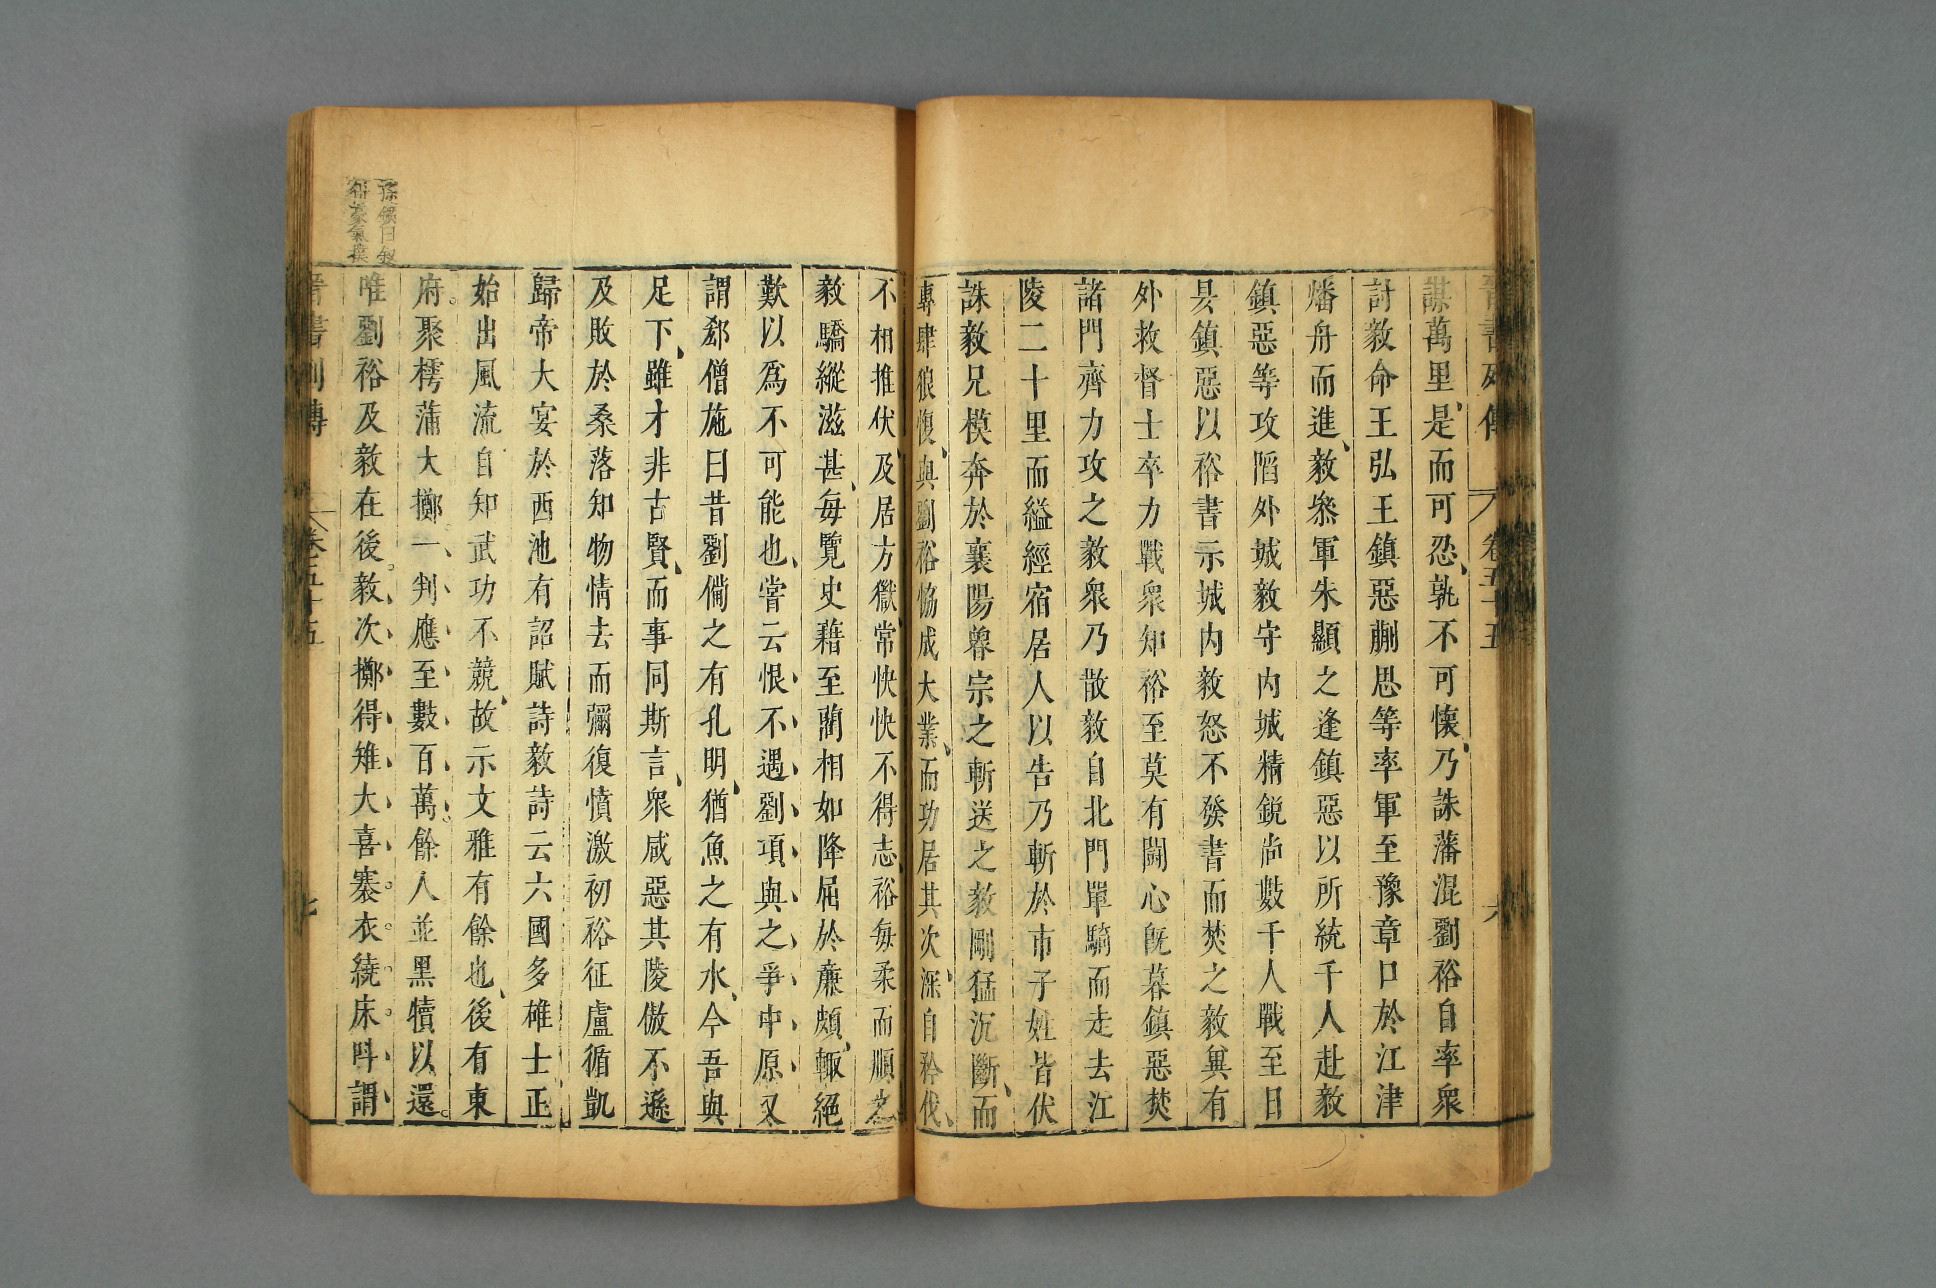 晉書列傳 卷五十五 六
謀萬里是而可忍孰不可懷乃誅藩混劉裕自率衆
討毅命王弘王鎮惡蒯恩等率軍至豫章口於江津
燔舟而進毅參軍朱顯之逢鎮惡以所統千人赴毅
鎮惡等攻陷外城毅守內城精銳尚數千人戰至日
昃鎮惡以裕書示城內毅怒不發書而焚之毅冀有
外救督士卒力戰衆知裕至莫有鬭心旣暮鎮惡焚
諸門齊力攻之毅衆乃散毅自北門單騎而走去江
陵二十里而縊經宿居人以告乃斬於市子姪皆伏
誅毅兄模奔於襄陽魯宗之斬送之毅剛猛沉斷而
專肆狼愎與劉裕恊成大業而功居其次深自矜伐
不相推伏及居方嶽常怏怏不得志裕每柔而順之
毅驕縱滋甚每覽史籍至藺相如降屈於廉頗輒絕
歎以爲不可能也嘗云恨不遇劉項與之爭中原又
謂郄僧施曰昔劉備之有孔明猶魚之有水今吾與
足下雖才非古賢而事同斯言衆咸惡其陵傲不遜
及敗於桑落知物情去而彌復憤激初裕征盧循凱
歸帝大宴於西池有詔賦詩毅詩云六國多雄士正
始出風流自知武功不競故示文雅有餘也後有東
府聚樗蒲大擲一判應至數百萬餘人並黑犢以還
唯劉裕及毅在後毅次擲得雉大喜褰衣繞床呌謂
晉書列傳 卷五十五 七